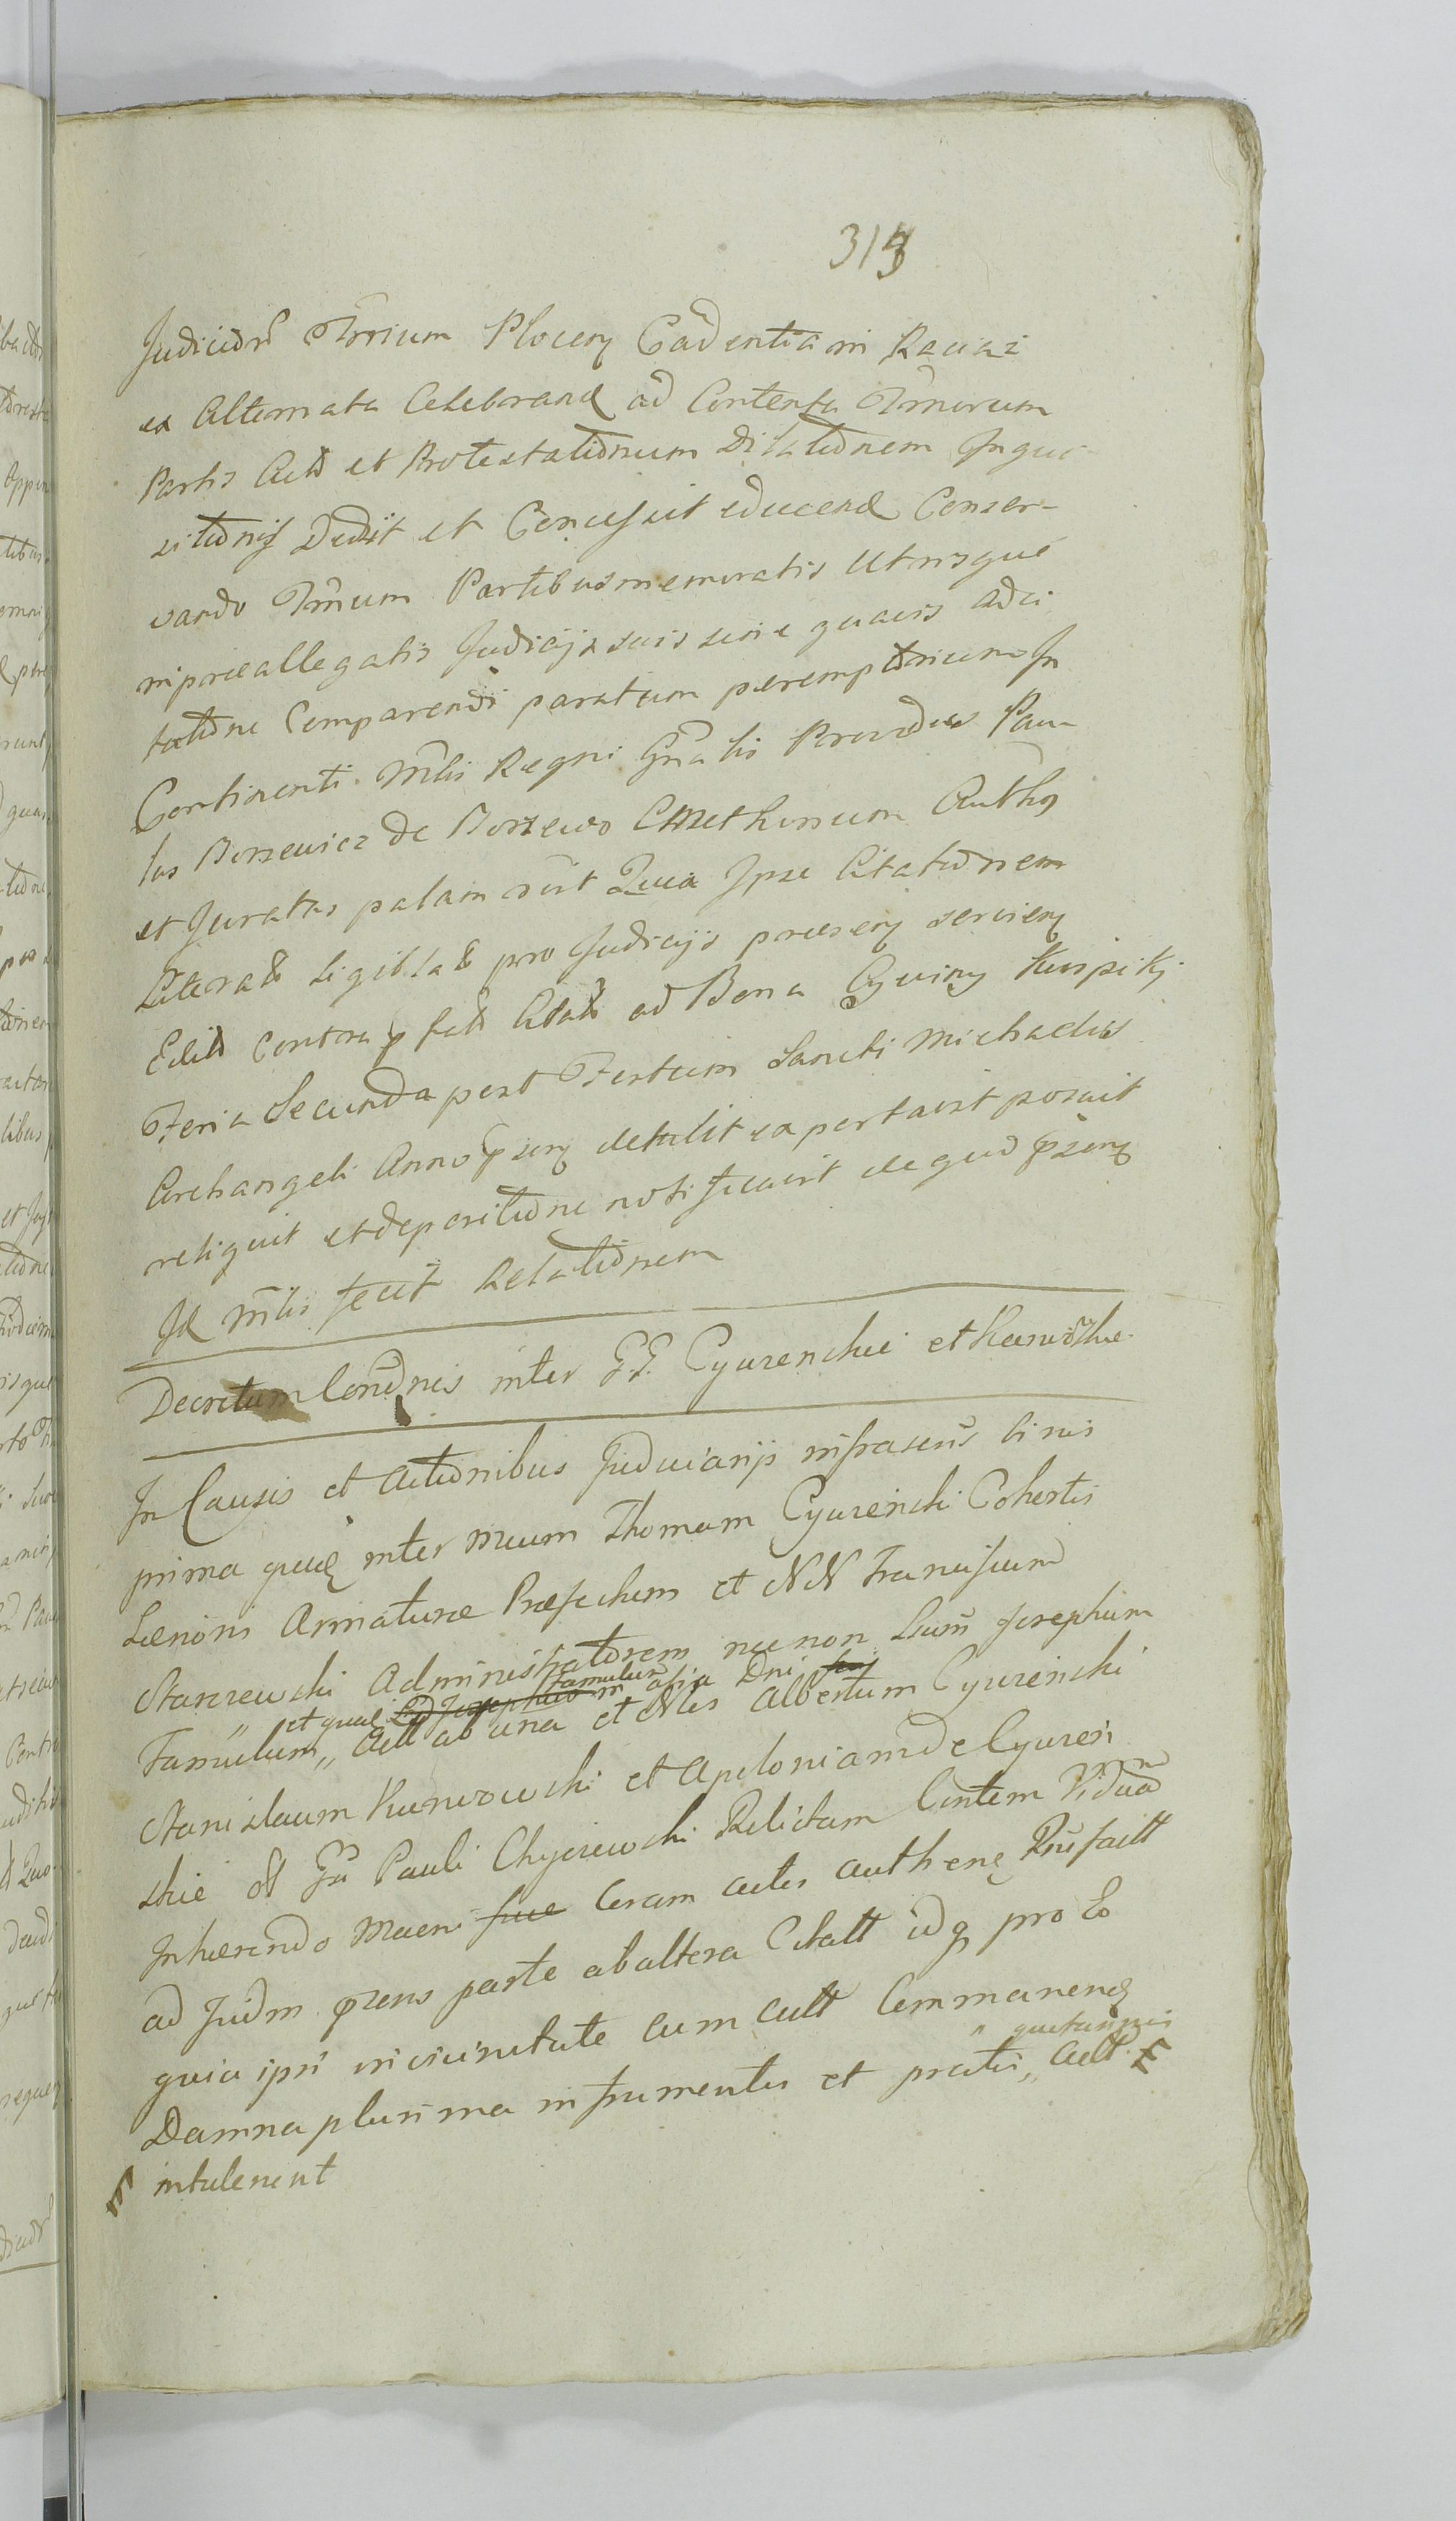 313
Judiciorũ Trrium Plocen Cadentia in Raciąż
ex Alternata Celebrand ad Contenta Tmnorum
Partis Acto et Protestationum Dilationem Inqui
sitionis Dedit et Concessit educend Conser-
vando Tmnum Partibus memoratis Utrisque
in praeallegatis Judicijs suis sine quavis adci
tatione Comparendi paratum peremptorium In
Continenti. Mlis Regni Gnalis Providus Pau
lus Borzewicz de Borzewo CMethonum Auth
et Juratus palam rcit Quia Ipse Citationem
Literato Sigillato pro Judicijs praesen servien
Edito Contra et fato Citato ad Bona Cyviny Kurpiki
Feria Secunda post Festum Sancti Michaelis
Archangeli Anno psen detulit exportavit posuit
reliquit et depositione notificavit de quo psens
Id mlis fecit Relationem
Decretum Condnis inter GG. Cyurenckie et Kunowskie
In Causis et Actionibus Judiciarijs infrascris binis
prima quidē inter Mcum Thomam Cyurenski Cohortis
Levioris Armaturae Praefectum et NN Franciscum
Starczewski Administratorem nec non Lum Josephum
et quae Famulum in asia Dni
Famulum Act ab una et Nles Albertum Cyurenski
Stanislaum Kunowski et Apoloniam de Cyuren
skie olt Gn Pauli Chyczewski Relictam Contem Viduam
Inhaerendo Maeni suae Coram actis authenę Rnisfactt
ad Judm psens parte ab altera Citatt idq pro Eo
quia ipsi in vicinitate cum actt Commanenę
quotannis
Damna plurima in frumentis et pratis actt
intulerunt